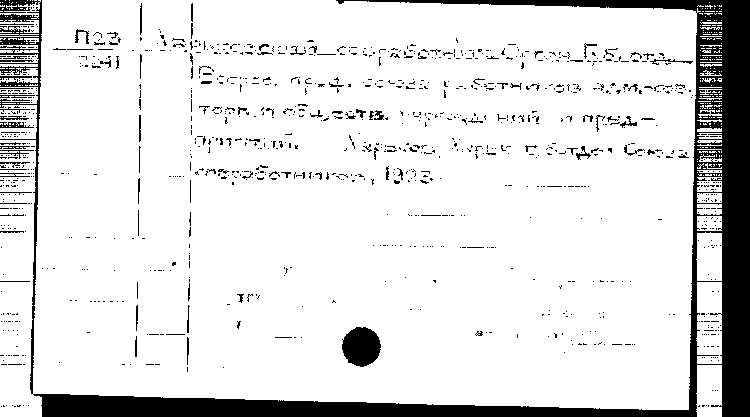 П23 Харьковский совработник. Орган Губотд.
2241 Всерос. проф. союза работников адм.-сов.
торг. и обществ. учреждений и пред-
приятий. Харьков, Харьк. губотдел Союза
совработников, 1923